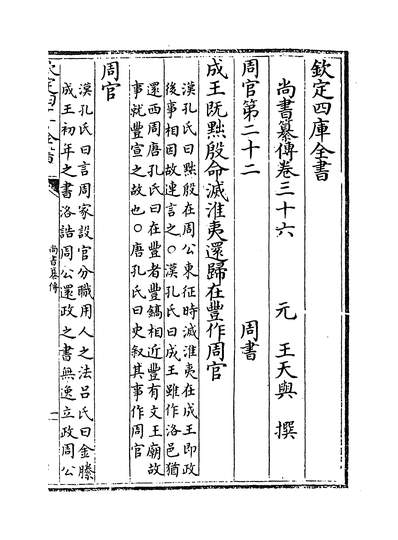 欽定四庫全書
尚書纂傳卷三十六 元 王天與 撰
周官第二十二 周書
成王旣黜殷命滅淮夷還歸在豐作周官
漢孔氏曰黜殷在周公東征時滅淮夷在成王即政
後事相因故連言之○漢孔氏曰成王雖作洛邑猶
還西周唐孔氏曰在豐者豐鎬相近豐有文王廟故
事就豐宣之故也○唐孔氏曰史叙其事作周官
周官
漢孔氏曰言周家設官分職用人之法呂氏曰金縢
成王初年之書洛誥周公還政之書無逸立政周公
尚書纂傳